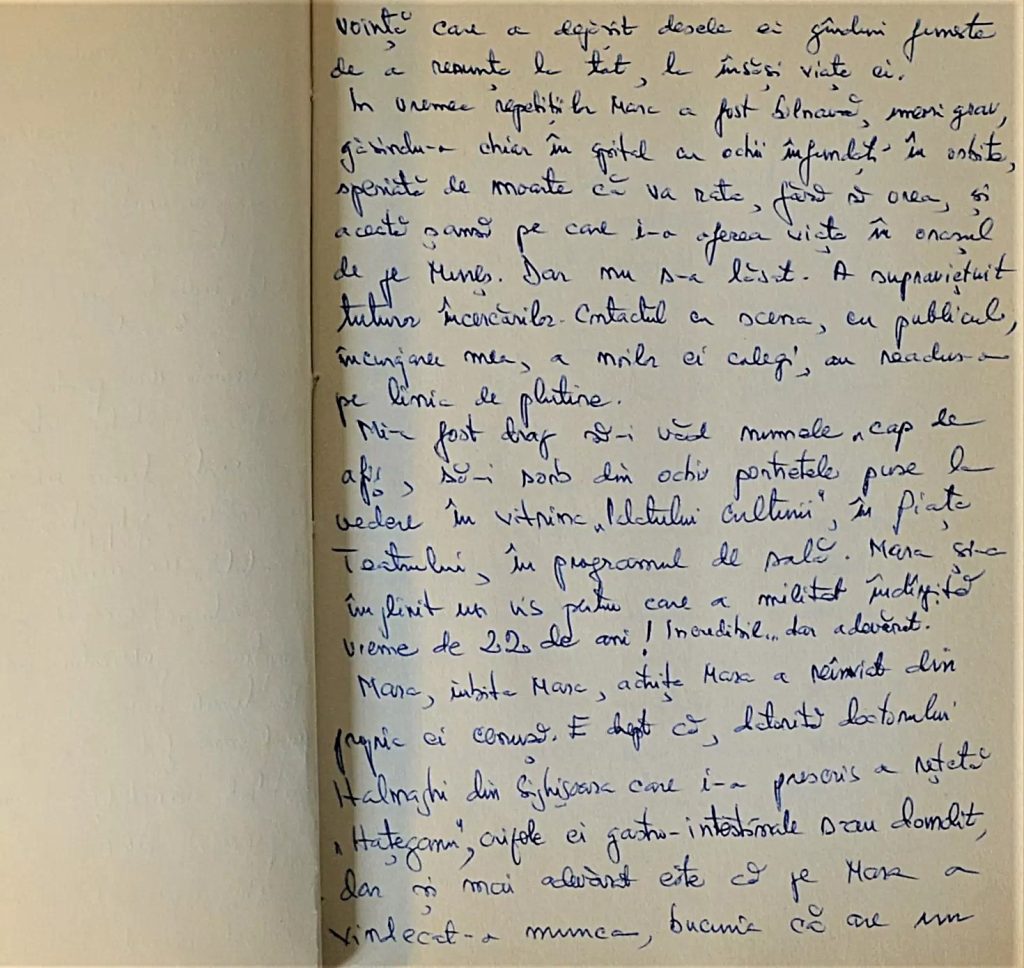 voință care a depășit desele ei gînduri funeste
de a renunța la tot, la însăși viața ei.
In vremea repetițiilor Mara a fost bolnavă, mersi grav,
găsindu-a chiar în spital cu ochii înfundați în orbite,
speriată de moarte că va rata, fără să vrea, și
această șansă pe care i-a oferea viața în orașul
de pe Mureș. Dar nu s-a lăsat. A supraviețuit
tuturor încercărilor. Contactul cu scena, cu publicul,
încurajarea mea, a noilor ei colegi, au readus-o
pe linia de plutire.
Mi-a fost drag să-i văd numele "cap de
afiș, să-i sorb din ochi portretele puse la
vedere în vitrina "Palatului culturii", în Piața
Teatrului, în programul de sală. Mara și-a
împlinit un vis pentru care a militat îndîrjită
vreme de 22 de ani! Incredibil... dar adevărat.
Mara, iubita Mara, actrița Mara a reînviat din
propria ei cenușă. E drept că, datorită doctorului
Halmaghi din Sighișoara care i-a prescris a rețetă
"Hațeganu", crizele ei gastro-intestinale s-au domolit,
dar și mai adevărat este că pe Mara a
vindecat-o munca, bucuria că are un